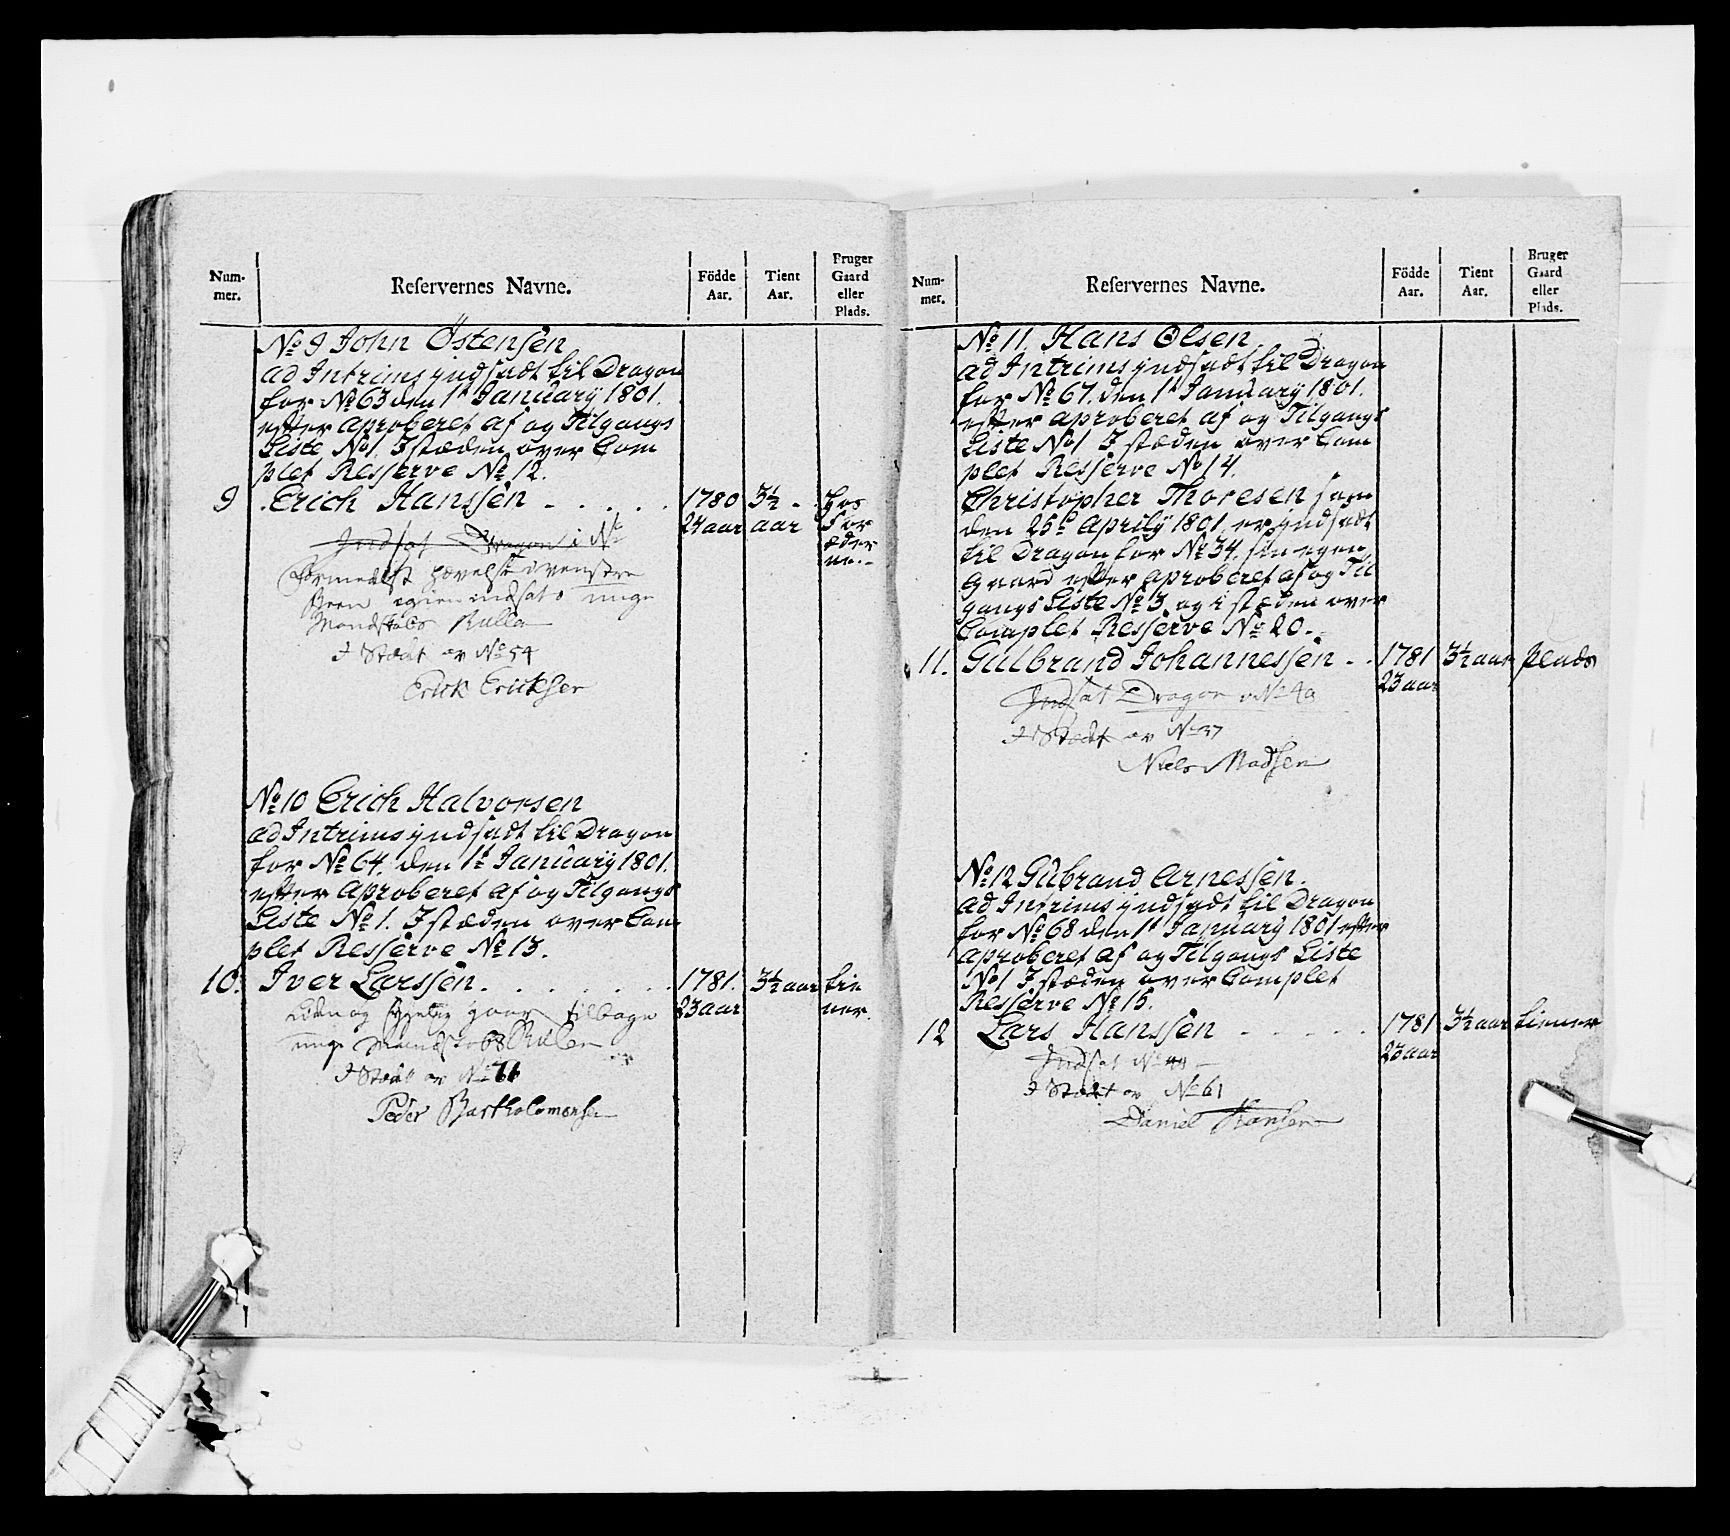 Num-
mer.
Reservernes Navne.
Födde
Aar.
Tient
Aar.
Bruger
Gaard
eller
Plads.
No 9 John Östensen
ad Intrims jndsadt til Dragon
for No 63 den 1t Januarÿ 1801.
efter Aproberet Af og Tilgangs
Liste No 1. I stæden over Com
plet Resserve No 12.
9 Erich Hanssen 1780 3½ hos
24 aar aar For
ælder
ne.
Indsat Dragon i No
Formedelst i venstre
Been igien indsat unge
Mandskabs Rulle
I Stædt ov No 54
Erick Ericksen
No 10 Erich Halvorsen
ad Intrims jndsadt til Dragon
for No 64. den 1t Januarÿ 1801.
efter Aproberet Af og Tilgangs
Liste No 1. I stæden over Com
plet Resserve No 13.
10. Iver Larssen 1781. 3½ aar tie
23 aar ner.
Liden og gaar tilbage
unge Mandskabs Rulle
I Stædt ov No
Peder Bartholomersen
Num-
mer.
Reservernes Navne.
Födde
Aar.
Tient
Aar.
Bruger
Gaard
eller
Plads.
No 11. Hans Olsen
ad Intrims jndsadt til Dragon
for No 67. den 1t Januarÿ 1801.
efter Aproberet Af og Tilgangs
Liste No 1 I stæden over Com
plet Resserve No 14
Christopher Thoresen som
den 25d Aprilÿ 1801. er jndsadt
til Dragon for No 34. sin egen
Gaard efter Aproberet af og Til
gangs Liste No 3. og i stæden over
Complet Resserve No 20.
11. Gulbrand Johannessen 1781 3½ aar plads
23 aar
Indsat Dragon
I Stædt ov No 37
Niels Madsen
No 12 Gulbrand Arnessen.
ad Intrims jndsadt til Dragon
for No 68 den 1t Januarÿ 1801 efter
Aproberet Af og Tilgangs Liste
No 1 I stæden over Complet
Resserve No 15.
12 Lars Hanssen 1781 3½ aar tiener
23 aar
Indsat No
I Stædt ov No 61
Daniel Hansen